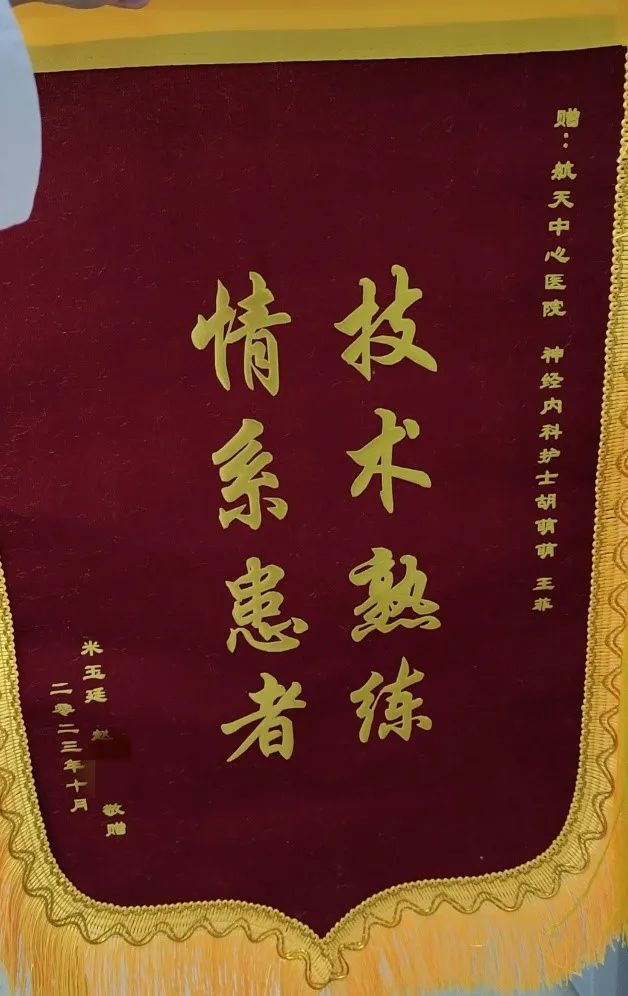 赠：航天中心医院 神经内科护士胡萌萌 王菲
技术熟练
情系患者
米玉廷 赵
敬赠
二零二三年十月